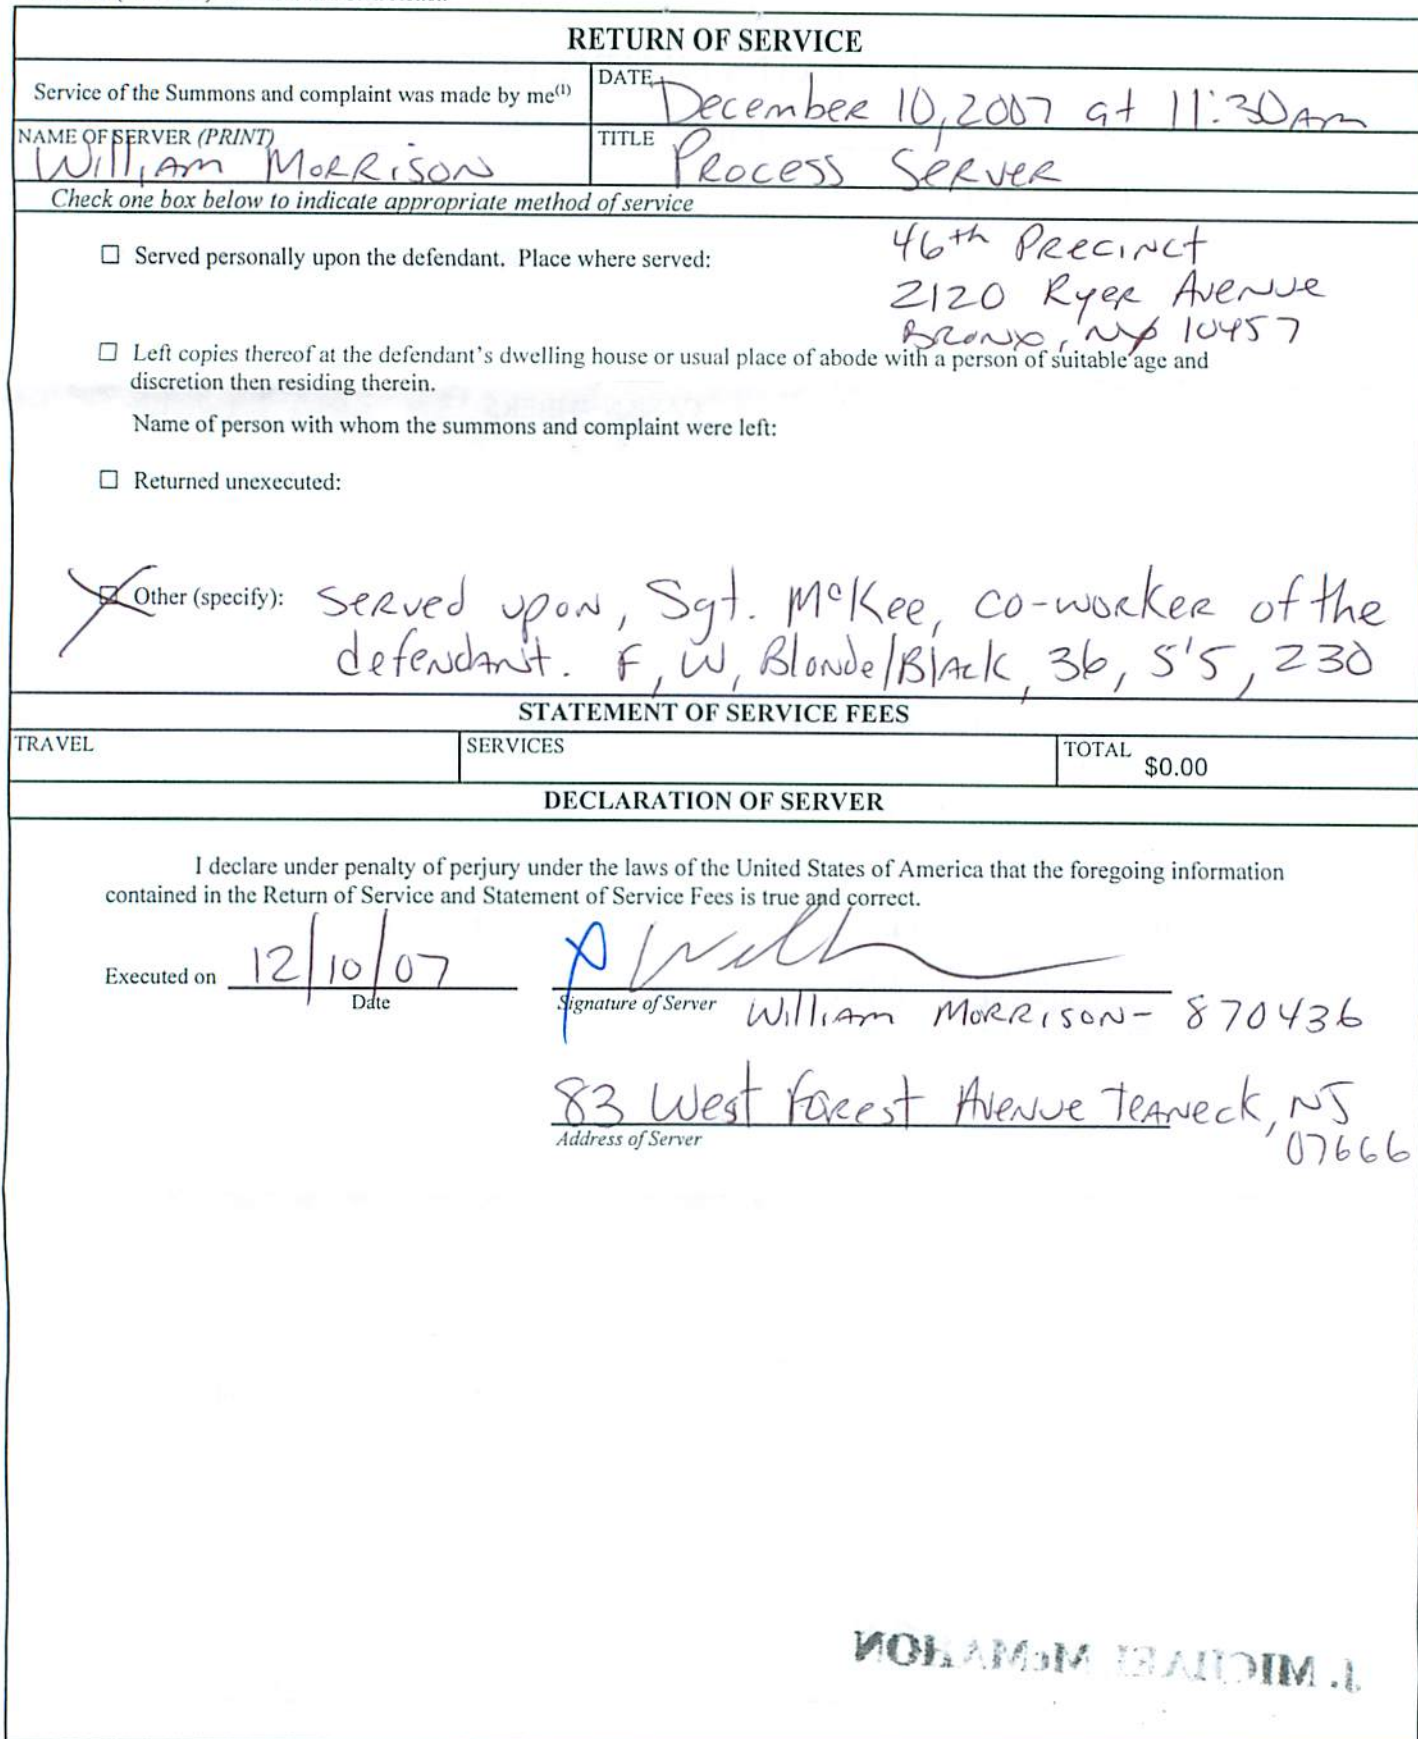 RETURN OF SERVICE
Service of the Summons and complaint was made by me(1)
DATE
December 10, 2007 at 11:30 Am
NAME OF SERVER (PRINT)
William Morrison
TITLE
Process Server
Check one box below to indicate appropriate method of service
☐ Served personally upon the defendant. Place where served:
46th Precinct
2120 Ryer Avenue
Bronx, NY 10457
☐ Left copies thereof at the defendant's dwelling house or usual place of abode with a person of suitable age and
discretion then residing therein.
Name of person with whom the summons and complaint were left:
☐ Returned unexecuted:
☒ Other (specify): Served upon, Sgt. McKee, co-worker of the
defendant. F, W, Blonde/Black, 36, 5'5, 230
STATEMENT OF SERVICE FEES
TRAVEL
SERVICES
TOTAL $0.00
DECLARATION OF SERVER
I declare under penalty of perjury under the laws of the United States of America that the foregoing information
contained in the Return of Service and Statement of Service Fees is true and correct.
Executed on 12/10/07
Date
Signature of Server William Morrison- 870436
83 West Forest Avenue Teaneck, NJ
07666
Address of Server
J. MICHAEL McMAHON